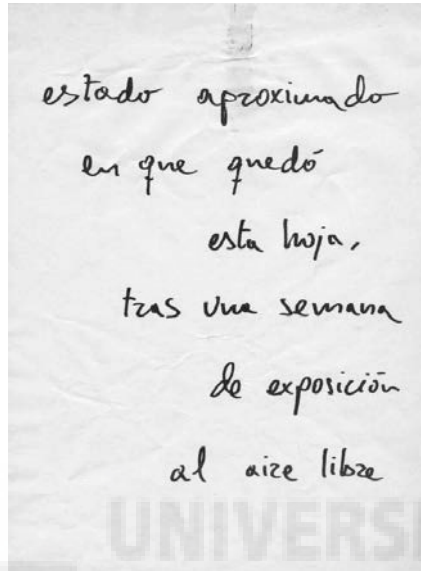 estado aproximado
en que quedó
esta hoja,
tras una semana
de exposición
al aire libre
UNIVERSI